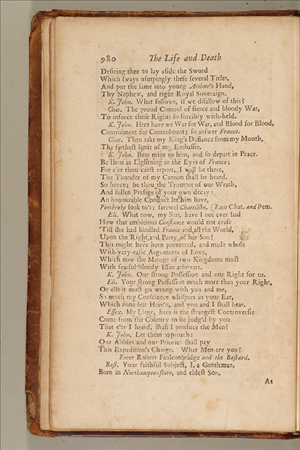 980 The Life and Death
Desiring thee to lay aside the Sword
Which sways usurpingly these several Titles,
And put the same into young Arthur's Hand,
Thy Nephew, and right Royal Sovereign.
K. John. What follows, if we disallow of this?
Chat. The proud Control of fierce and bloody War,
To inforce these Rights so forcibly with-held.
K. John. Here have we War for War, and Blood for Blood,
Controlment for Controlment; so answer France.
Chat. Then take my King's Defiance from my Mouth,
The farthest limit of my Embassie.
K. John. Bear mine to him, and so depart in Peace.
Be thou as Lightning in the Eyes of France;
For e'er thou canst report, I will be there,
The Thunder of my Cannon shall be heard.
So hence; be thou the Trumpet of our Wrath,
And sullen Presage of your own decay:
An honourable Conduct let him have,
Pembroke look to't; farewel Chatillon. [Exit Chat. and Pem.
Eli. What now, my Son, have I not ever said
How that ambitious Constance would not cease
'Till she had kindled France and all the World,
Upon the Right and Party of her Son?
This might have been prevented, and made whole
With very easie Arguments of Love,
Which now the Manage of two Kingdoms must
With fearful bloody Issue arbitrate.
K. John. Our strong Possession and our Right for us.
Eli. Your strong Possession much more than your Right,
Or else it must go wrong with you and me,
So much my Conscience whispers in your Ear,
Which none but Heav'n, and you and I shall hear.
Essex. My Liege, here is the strangest Controversie
Come from the Country to be judg'd by you
That e'er I heard; shall I produce the Men?
K. John. Let them approach:
Our Abbies and our Priories shall pay
This Expedition's Charge. What Men are you?
Enter Robert Faulconbridge and the Bastard.
Bast. Your faithful Subject, I, a Gentleman,
Born in Northamptonshire, and eldest Son,
As